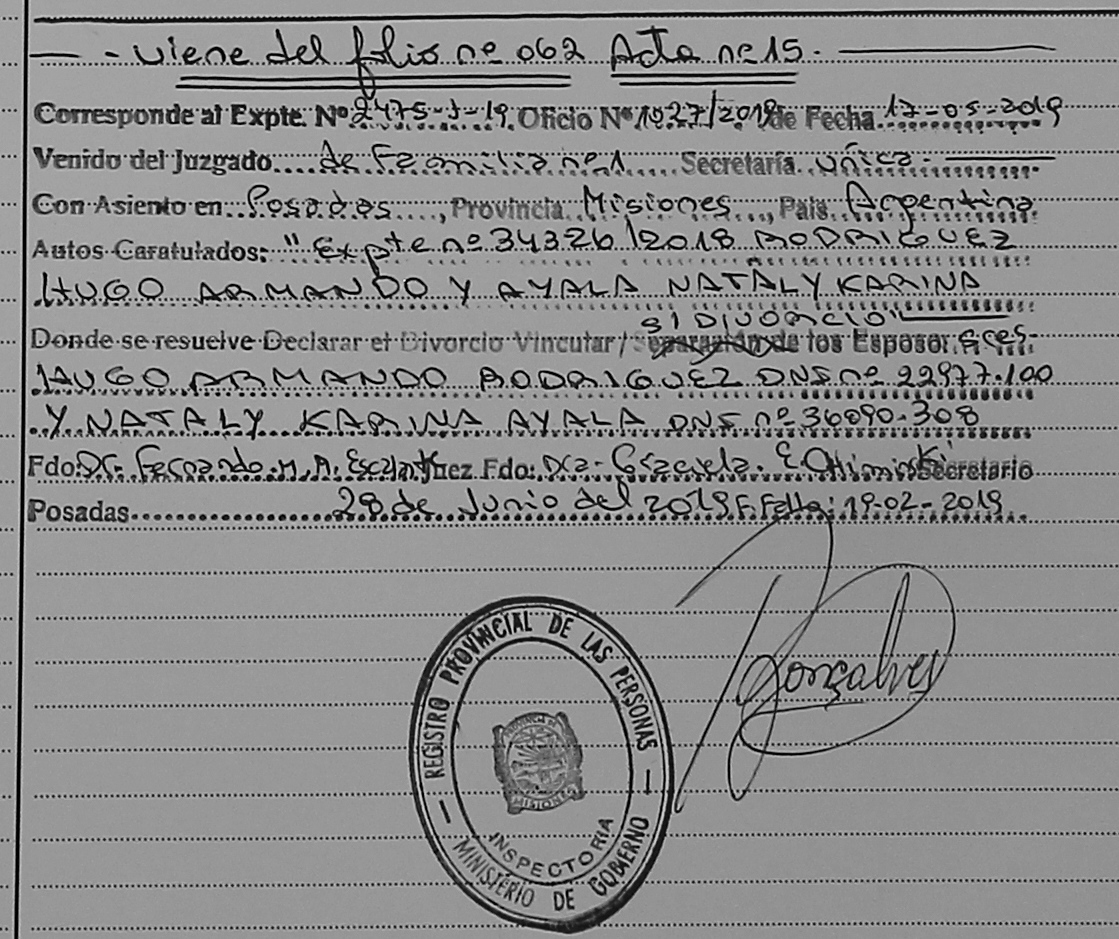 - Viene del folio nº 062 Acta nº 15.
Corresponde al Expte. Nº 2475-J-19. Oficio Nº 1027/2019 de Fecha 17-05-2019
Venido del Juzgado de Familia nº 1 Secretaría única.
Con Asiento en Posadas, Provincia Misiones, País Argentina
Autos Caratulados: "Expte nº 34326/2018 RODRIGUEZ
HUGO ARMANDO Y AYALA NATALY KARINA
S/ DIVORCIO
Donde se resuelve Declarar el Divorcio Vincular / Separación de los Esposos, sres.
HUGO ARMANDO RODRIGUEZ DNI nº 22977.100
Y NATALY KARINA AYALA DNI nº 36090.308
Fdo: Dr. Fernando M. A. Escalante Juez Fdo: Dra. Graciela E. Secretario
Posadas 28 de Junio del 2019 F. Fallo: 19-02-2019
Gonçalves
REGISTRO PROVINCIAL DE LAS PERSONAS
PROVINCIA DE
MISIONES
INSPECTORIA
MINISTERIO DE GOBIERNO